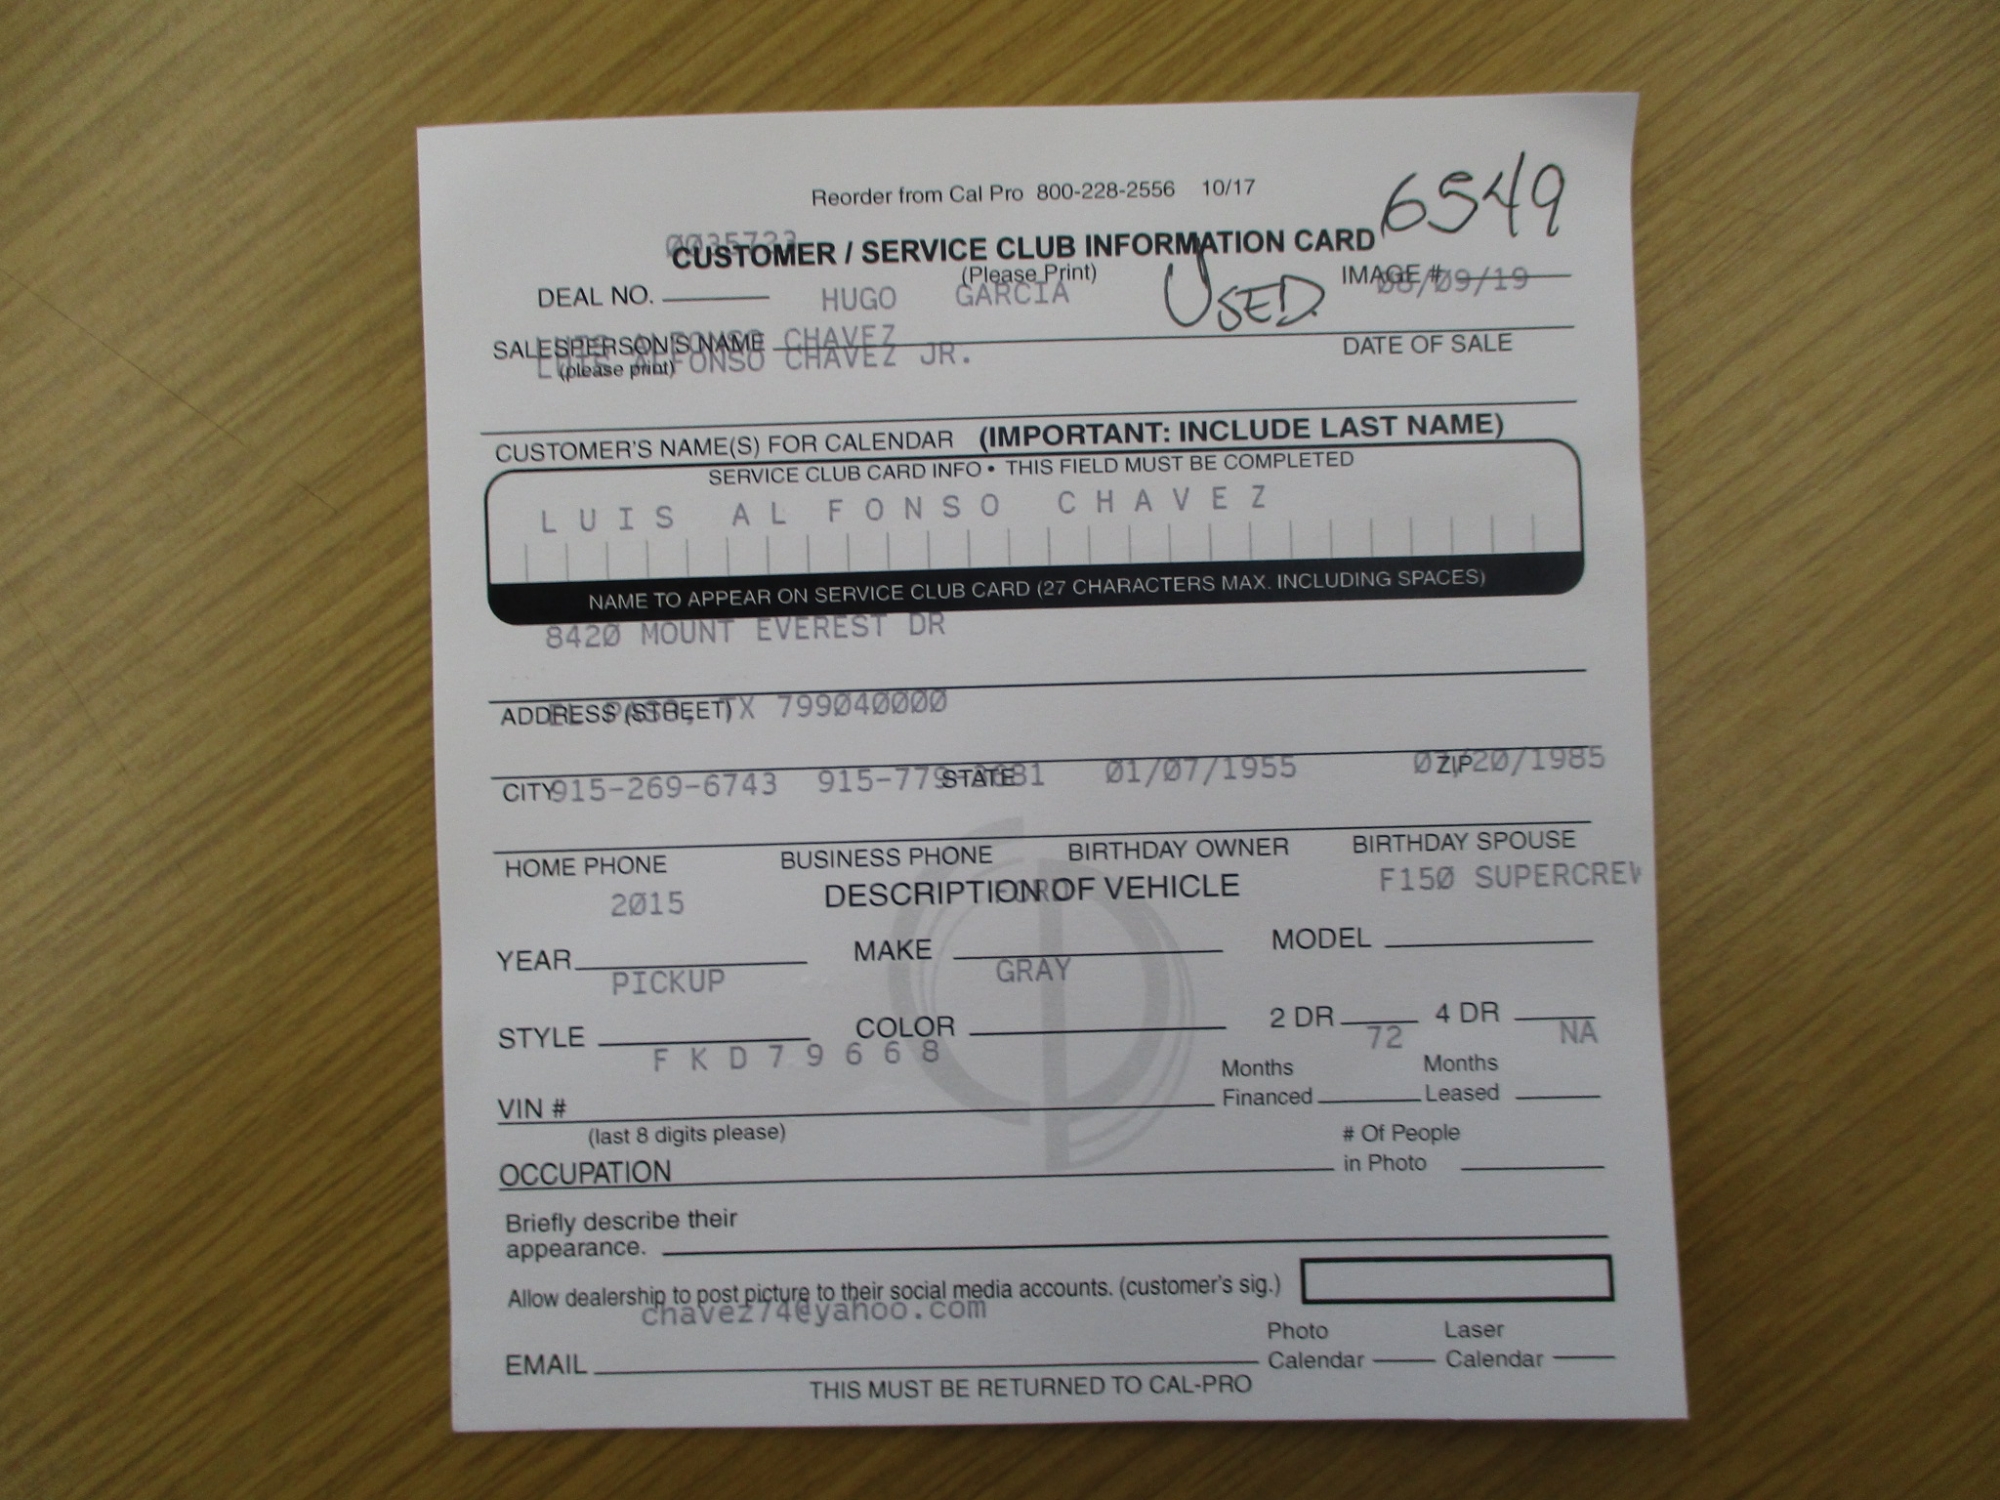 Reorder from Cal Pro 800-228-2556 10/17
6549
0035723
CUSTOMER / SERVICE CLUB INFORMATION CARD
(Please Print)
USED
DEAL NO. HUGO GARCIA IMAGE # /09/19
LUIS ALFONSO CHAVEZ
SALESPERSON'S NAME DATE OF SALE
LUIS ALFONSO CHAVEZ JR.
(please print)
CUSTOMER'S NAME(S) FOR CALENDAR (IMPORTANT: INCLUDE LAST NAME)
SERVICE CLUB CARD INFO • THIS FIELD MUST BE COMPLETED
LUIS ALFONSO CHAVEZ
NAME TO APPEAR ON SERVICE CLUB CARD (27 CHARACTERS MAX. INCLUDING SPACES)
8420 MOUNT EVEREST DR
EL PASO, TX 799040000
ADDRESS (STREET)
915-269-6743 01/07/1955
CITY STATE ZIP
HOME PHONE BUSINESS PHONE BIRTHDAY OWNER BIRTHDAY SPOUSE
2015 FORD F150 SUPERCREW
DESCRIPTION OF VEHICLE
YEAR MAKE MODEL
PICKUP GRAY
STYLE COLOR 2 DR 4 DR
72 NA
FKD79668
Months Financed Months Leased
VIN #
(last 8 digits please)
# Of People in Photo
OCCUPATION
Briefly describe their
appearance.
Allow dealership to post picture to their social media accounts. (customer's sig.)
chavez74@yahoo.com
Photo Calendar Laser Calendar
EMAIL
THIS MUST BE RETURNED TO CAL-PRO